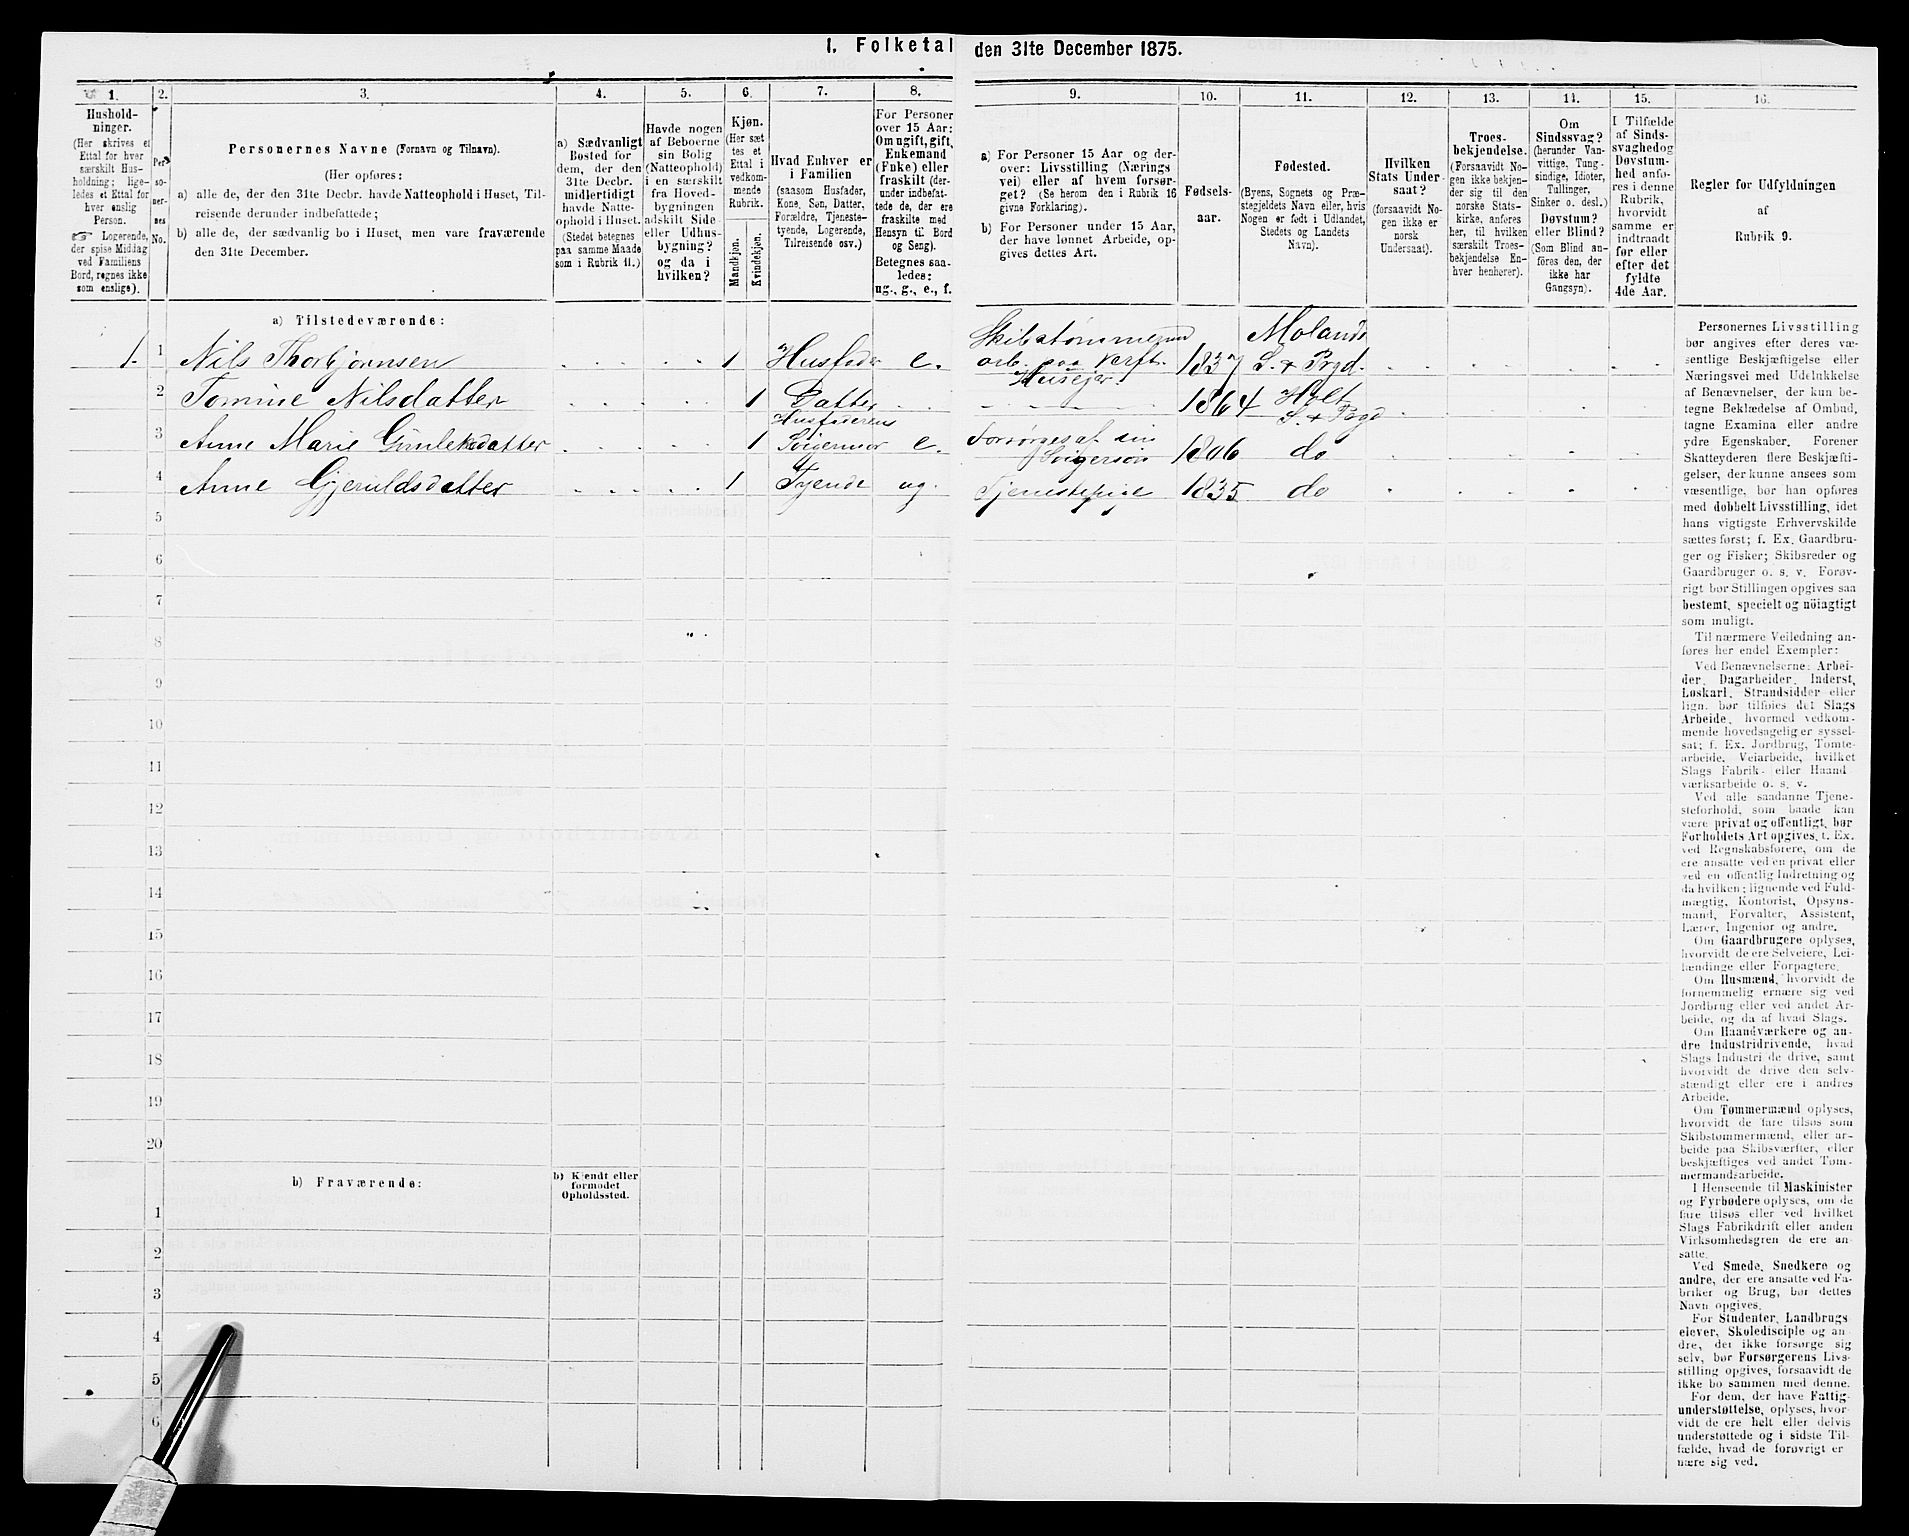 1. Folketal den 31te December 1875.
1. 2. 3. 4. 5. 6. 7. 8. 9. 10. 11. 12. 13. 14. 15. 16.
Hushold-
ninger.
(Her skrives et
Ettal for hver
særskilt Hus-
holdning; lige-
ledes et Ettal for
hver enslig
Person.
☞ Logerende,
der spise Middag
ved Familiens
Bord, regnes ikke
som enslige).
Per
so-
ner-
nes
No.
Personernes Navne (Fornavn og Tilnavn).
(Her opføres:
a) alle de, der den 31te Decbr. havde Natteophold i Huset, Til-
reisende derunder indbefattede;
b) alle de, der sædvanlig bo i Huset, men vare fraværende
den 31te December.
a) Sædvanligt
Bosted for
dem, der den
31te Decbr.
midlertidigt
havde Natte-
ophold i Huset.
(Stedet betegnes
paa samme Maade
som i Rubrik 11.)
Havde nogen
af Beboerne
sin Bolig
(Natteophold)
i en særskilt
fra Hoved-
bygningen
adskilt Side-
eller Udhus-
bygning?
og da i
hvilken?
Kjøn.
(Her sæt
tes et
Ettal i
vedkom-
mende
Rubrik.
Mandkjøn.
Kvindekjøn.
Hvad Enhver er
i Familien
(saasom Husfader,
Kone, Søn, Datter,
Forældre, Tjeneste-
tyende, Logerende,
Tilreisende osv.)
For Personer
over 15 Aar:
Om ugift, gift,
Enkemand
(Enke) eller
fraskilt (der-
under indbefat-
tede de, der ere
fraskilte med
Hensyn til Bord
og Seng).
Betegnes saa-
ledes:
ug., g., e., f.
a) For Personer 15 Aar og der-
over: Livsstilling (Nærings
vei) eller af hvem forsør-
get? (Se herom den i Rubrik 16
givne Forklaring).
b) For Personer under 15 Aar,
der have lønnet Arbeide, op-
gives dettes Art.
Fødsels-
aar.
Fødested.
(Byens, Sognets og Præ-
stegjeldets Navn eller, hvis
Nogen er født i Udlandet,
Stedets og Landets
Navn).
Hvilken
Stats Under
saat?
(forsaavidt No-
gen ikke er
norsk
Undersaat).
Troes-
bekjendelse.
(Forsaavidt No-
gen ikke bekjen-
der sig til den
norske Stats-
kirke, anføres
her, til hvilken
særskilt Troes-
bekjendelse En-
hver henhører).
Om
Sindssvag?
(herunder Van-
vittige, Tung-
sindige, Idioter,
Tullinger,
Sinker o. desl.)
Døvstum?
eller Blind?
(Som Blind an-
føres den, der
ikke har
Gangsyn).
I Tilfælde
af Sinds-
svaghed og
Døvstum-
hed anfø-
res i denne
Rubrik,
hvorvidt
samme er
indtraadt
før eller
efter det
fyldte
4de Aar.
Regler for Udfyldningen
af
Rubrik 9.
a) Tilstedeværende:
1. 1 Nils Thorbjørnsen 1 Husfader e. Skibstømmermd arb. paa Verft. Huseier. 1837 Molands S. & Prgd.
2 Tomine Nilsdatter 1 Datter 1864 Holt S. & Prgd
3 Anne Marie Gunleksdatter 1 Husfaderens Svigermor e. Forsørges af sin Svigersøn 1806 do
4 Anne Gjeruldsdatter 1 Tyende ug. Tjenestepige 1835 do
5
6
7
8
9
10
11
12
13
14
15
16
17
18
19
20
b) Fraværende:
b) Kjendt eller
formodet
Opholdssted.
1
2
3
4
5
6
Personernes Livsstilling
bør angives efter deres væ-
sentlige Beskjæftigelse eller
Næringsvei med Udelukkelse
af Benævnelser, der kun be-
tegne Beklædelse af Ombud,
tagne Examina eller andre
ydre Egenskaber. Forener
Skatteyderen flere Beskjæfti-
gelser, der kunne ansees som
væsentlige, bør han opføres
med dobbelt Livsstilling, idet
hans vigtigste Erhvervskilde
sættes først; f. Ex. Gaardbru-
ger og Fisker; Skibsreder og
Gaardbruger o. s. v. Forøv-
rigt bør Stillingen opgives saa
bestemt, specielt og nöiagtigt
som muligt.
Til nærmere Veiledning an-
føres her endel Exempler:
Ved Benævnelserne: Arbei-
der, Dagarbeider, Inderst,
Løskarl, Strandsidder eller
lign. bør tilføies det Slags
Arbeide, hvormed vedkom-
mende hovedsagelig er syssel-
sat; f. Ex. Jordbrug, Tomte-
arbeide, Veiarbeide, hvilket
Slags Fabrik- eller Haand-
værksarbeide o. s. v.
Ved alle saadanne Tjene-
steforhold, som baade kan
være privat og offentligt, bør
Forholdets Art opgives, t. Ex.
ved Regnskabsførere, om de
ere ansatte ved en privat eller
ved en offentlig Indretning og
da hvilken; lignende ved Fuld-
mægtig, Kontorist, Opsyns-
mand, Forvalter, Assistent,
Lærer, Ingeniør og andre.
Om Gaardbrugere oplyses,
hvorvidt de ere Selveiere, Lei-
lændinge eller Forpagtere.
Om Husmænd, hvorvidt de
fornemmelig ernære sig ved
Jordbrug eller ved andet Ar-
beide, og da af hvad Slags.
Om Haandværkere og an-
dre Industridrivende, hvad
Slags Industri de drive, samt
hvorvidt de drive den selv-
stændigt eller ere i andres
Arbeide.
Om Tømmermænd oplyses,
hvorvidt de fare tilsøs som
Skibstømmermænd, eller ar-
beide paa Skibsværfter, eller
beskjæftiges ved andet Tøm-
mermandsarbeide.
I Henseende til Maskinister
og Fyrbødere oplyses, om de
fare tilsøs eller ved hvilket
Slags Fabrikdrift eller anden
Virksomhedsgren de ere an-
satte.
Ved Smede, Snedkere og
andre, der ere ansatte ved Fa-
briker og Brug, bør dettes
Navn opgives.
For Studenter, Landbrugs
elever, Skoledisciple og an
dre, der ikke forsørge sig
selv, bør Forsørgerens Livs-
stilling opgives, forsaavidt de
ikke bo sammen med denne.
For dem, der have Fattig-
understøttelse, oplyses, hvor-
vidt de ere helt eller delvis
understøttede og i sidste Til-
fælde, hvad de forøvrigt er
nære sig ved.